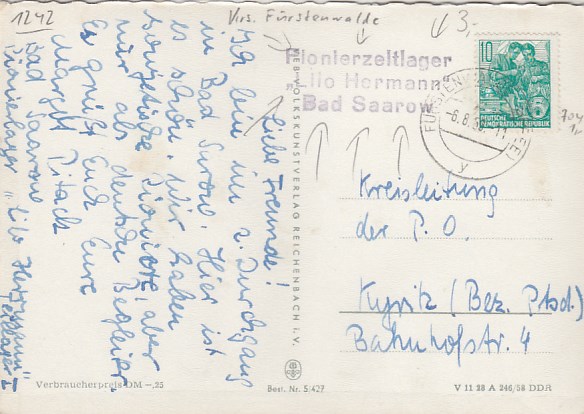 1242
Vrs. Fürstenwalde
3,-
Pionierzeltlager
„Lilo Hermann"
Bad Saarow
10
DEUTSCHE
DEMOKRATISCHE REPUBLIK
FÜRSTENW
-6.8.
Liebe Freunde!
Ich bin im 2. Durchgang
in Bad Sarow. Hier ist
es schön. Wir haben
französische Pioniere, aber
nur als deutsche Begleiter.
Es grüßt Euch Eure
Margret
Bad Saarow
Pionierlager „Lilo Herrmann"
Zeltlager I
VEB VOLKSKUNSTVERLAG REICHENBACH I. V.
Kreisleitung
der P. O.
Kyritz (Bez. Ptsd.)
Bahnhofstr. 4
Verbraucherpreis DM -,25
Best. Nr. 5/427
V 11 28 A 246/58 DDR